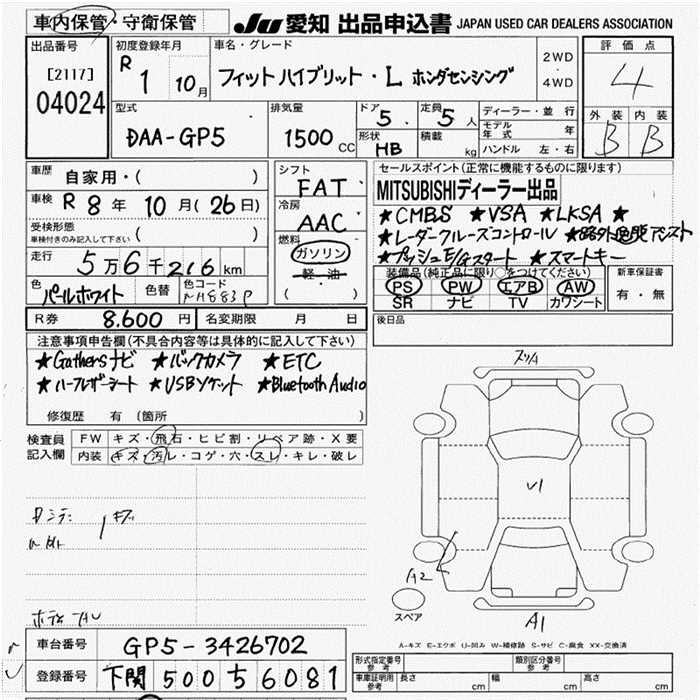 車内保管・守衛保管
JU 愛知 出品申込書 JAPAN USED CAR DEALERS ASSOCIATION
出品番号
[2117]
04024
初度登録年月
R 1 10月
車名・グレード
フィットハイブリット・L ホンダセンシング
2WD
・
4WD
評価点
4
外装 内装
B B
型式
DAA-GP5
排気量
1500 CC
ドア 5
形状 HB
定員 5人
積載 kg
ディーラー・並行
モデル年式 年
ハンドル 左・右
車歴 自家用・( )
車検 R8年10月(26日)
受検形態
車検付きのみ記入して下さい ( )
走行 5万6千216km
色 パールホワイト 色替 色コード NH883P
シフト
FAT
冷房
AAC
燃料
ガソリン
軽・油
( )
セールスポイント(正常に機能するものに限ります)
MITSUBISHIディーラー出品
★CMBS ★VSA ★LKSA ★
★レーダークルーズコントロール ★路外逸脱アシスト
★プッシュE/Gスタート ★スマートキー
装備品(純正品に限り○をつけてください)
PS PW エアB AW
SR ナビ TV カワシート
新車保証書
有・無
R券 8.600円 名変期限 月 日
後日品
注意事項申告欄(不具合内容等は具体的に記入して下さい)
★Gathersナビ ★バックカメラ ★ETC
★ハーフレザーシート ★USBソケット ★Bluetooth Audio
修復歴 有 (箇所 )
検査員記入欄
FW キズ・飛石・ヒビ割・リペア跡・X要
内装 キズ・汚レ・コゲ・穴・スレ・キレ・破レ
スリA
U1
A2
A1
スペア
A-キズ E-エクボ U-凹み W-補修跡 S-サビ C-腐食 XX-交換済
車台番号 GP5-3426702
登録番号 下関 500 ち 6081
形式指定番号 参考
類別区分番号 参考
車庫証明用 参考 長さ cm 幅 cm 高さ cm